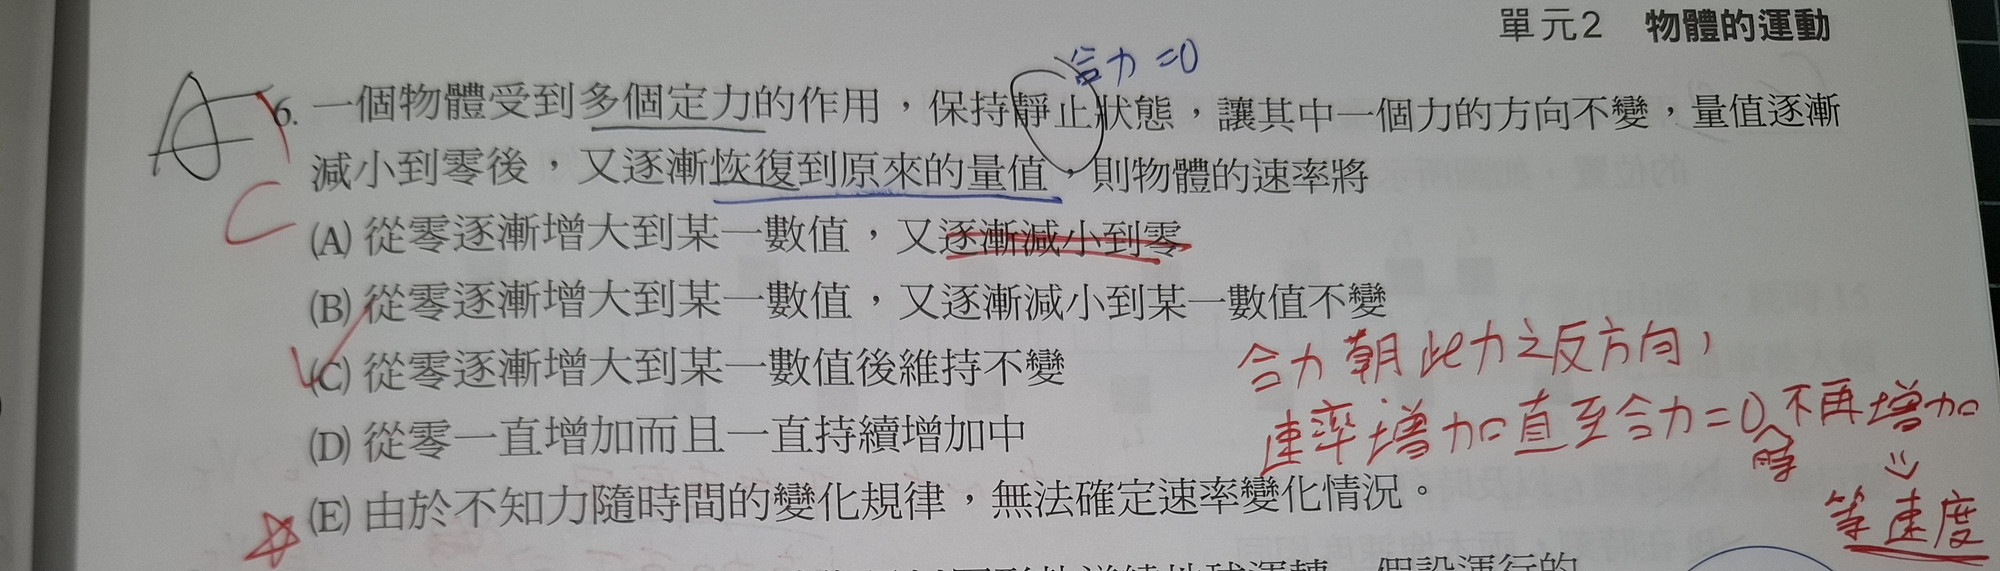 單元2 物體的運動
合力=0
A
6. 一個物體受到多個定力的作用，保持靜止狀態，讓其中一個力的方向不變，量值逐漸
減小到零後，又逐漸恢復到原來的量值，則物體的速率將
C
(A) 從零逐漸增大到某一數值，又逐漸減小到零
(B) 從零逐漸增大到某一數值，又逐漸減小到某一數值不變
(C) 從零逐漸增大到某一數值後維持不變
(D) 從零一直增加而且一直持續增加中
(E) 由於不知力隨時間的變化規律，無法確定速率變化情況。
合力朝此力之反方向，
速率增加直至合力=0時不再增加
⇓
等速度